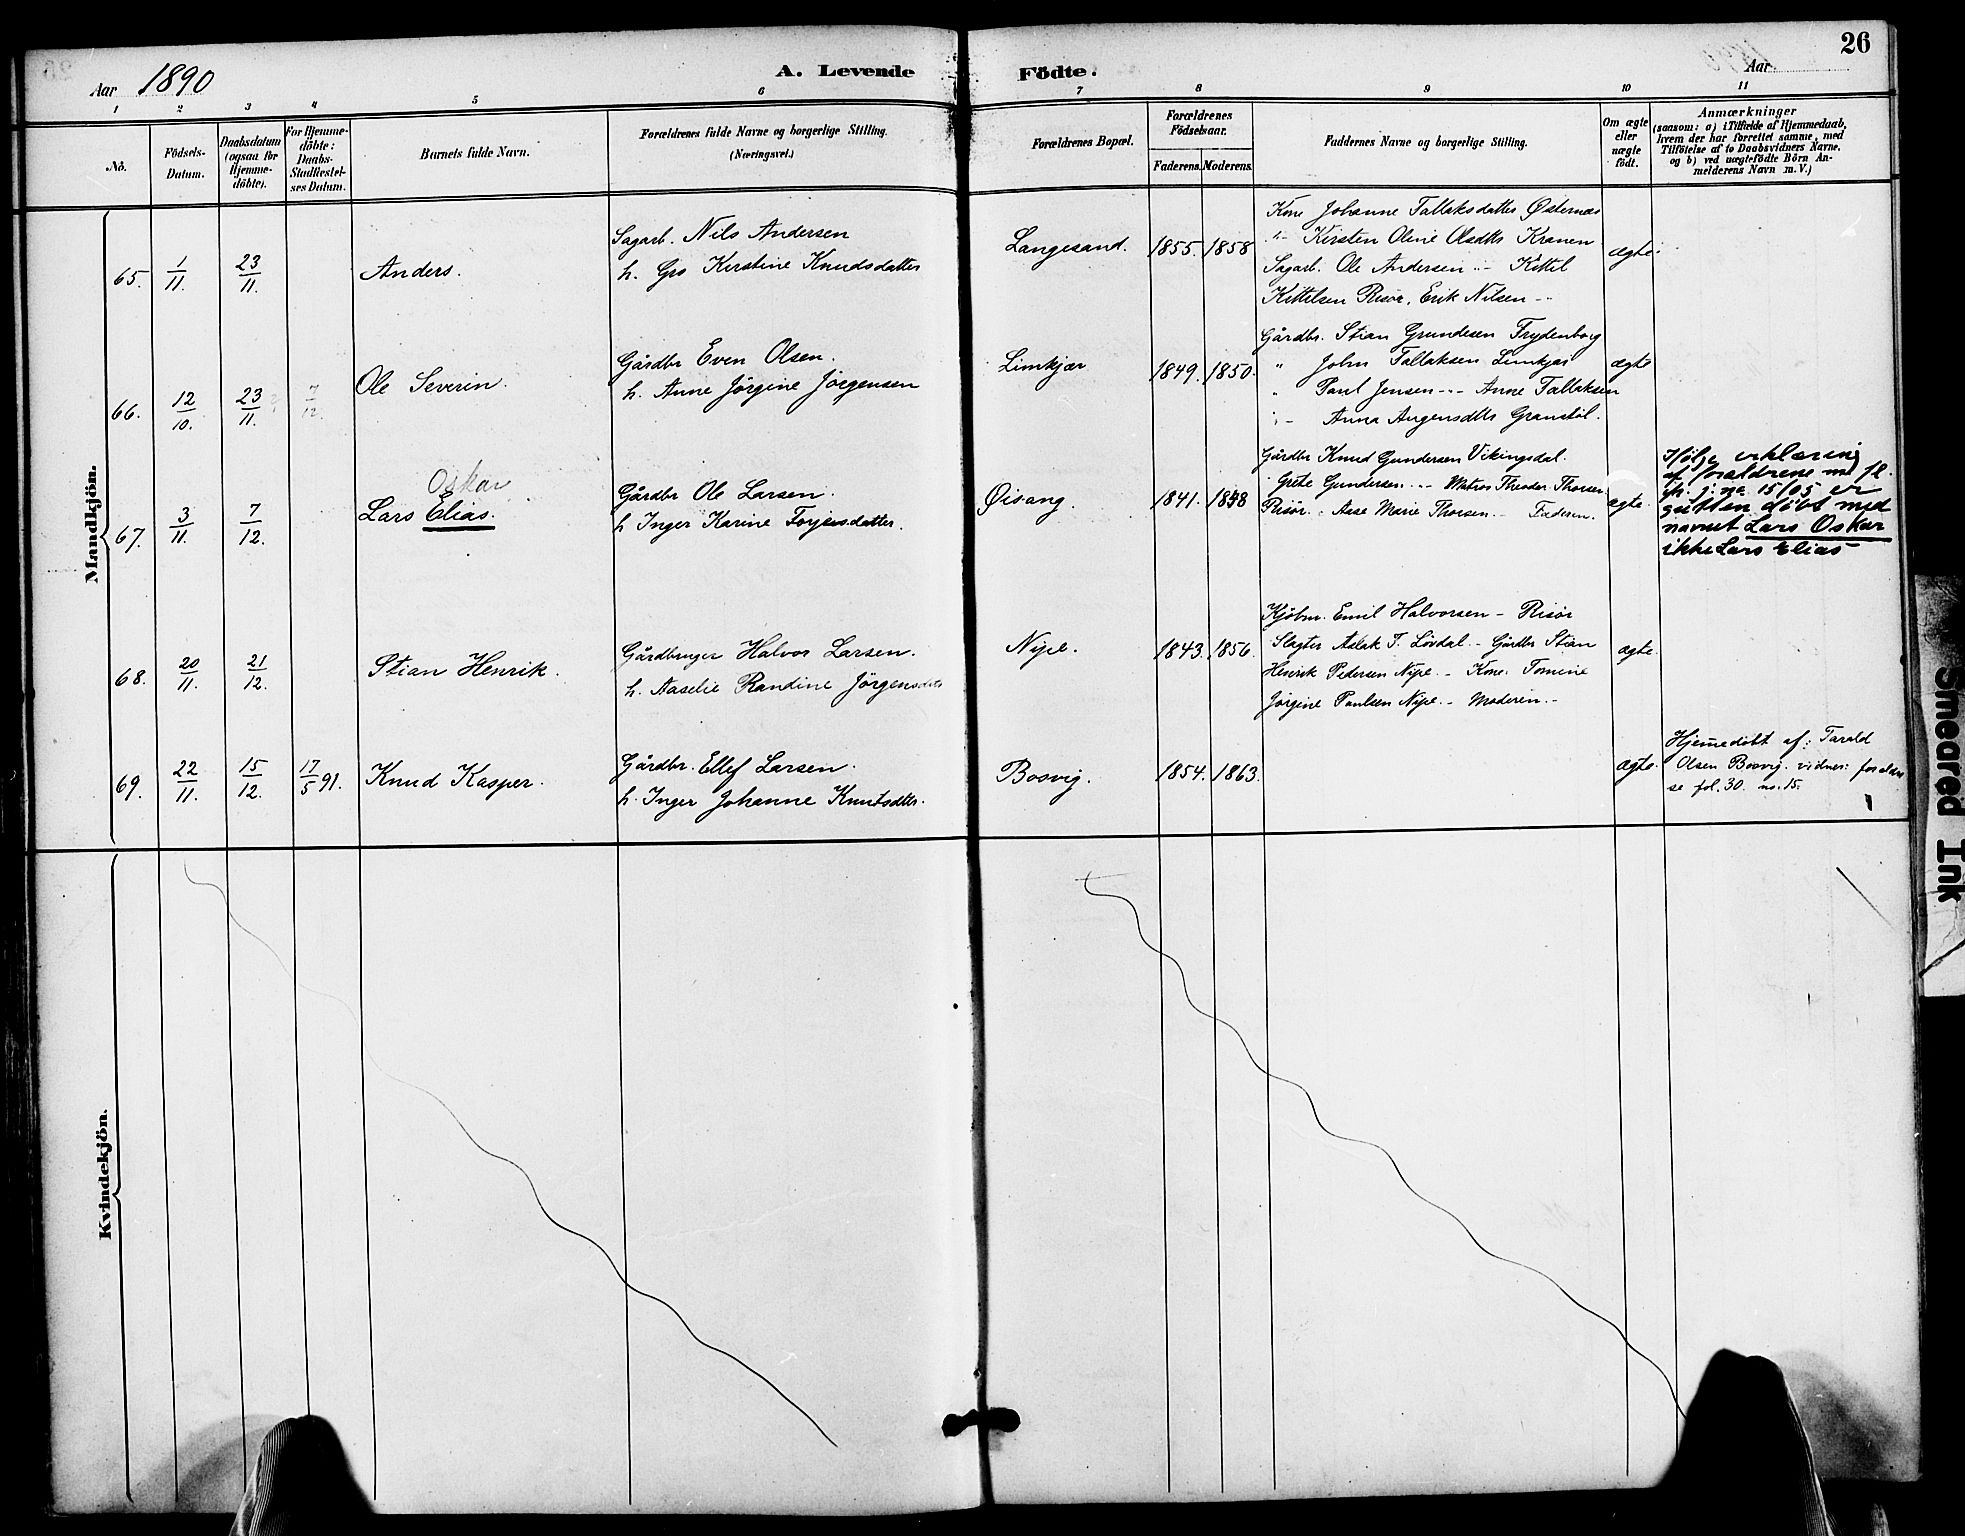 Aar 1890
A. Levende Födte.
26
Aar
1 2 3 4 5 6 7 8 9 10 11
No.
Födsels-Datum.
Daabsdatum (ogsaa for Hjemme-döbte).
For Hjemme-döbte: Daabs-Stadfæstel-ses Datum.
Barnets fulde Navn.
Forældrenes fulde Navne og borgerlige Stilling.
(Næringsvei.)
Forældrenes Bopæl.
Forældrenes Födselsaar.
Faderens. Moderens.
Faddernes Navne og borgerlige Stilling.
Om ægte eller uægte födt.
Anmærkninger
(saasom: a) i Tilfælde af Hjemmedaab,
hvem der har forrettet samme, med
Tilföielse af to Daabsvidners Navne.
og b) ved uægtefödte Börn An-
melderens Navn m. V.)
Mandkjön.
65. 1/11. 23/11. Anders.
Sagarb. Nils Andersen
h. Gro Kirstine Knudsdatter
Langesand. 1855. 1858
Kone Johanne Tallaksdatter Østernæs
"- Kirsten Oline Olsdtr Kranen
Sagarb. Ole Andersen "- Kittel
Kittelsen Risör. Erik Nilsen -"
ægte.
66. 12/10. 23/11. 7/12. Ole Severin.
Gårdbr Even Olsen.
h. Anne Jörgine Jörgensen
Limkjær 1849. 1850.
Gårdbr. Stian Grundesen Frydenborg
" John Tallaksen Limkjær
" Paul Jensen -"- Anne Tallaksen
"- Anna Augensdtr Granstöl.
ægte
67. 3/11. 7/12. Oskar
Lars Elias.
Gårdbr Ole Larsen.
h Inger Karine Torjusdatter.
Øisang. 1841. 1848
Gårdbr Knud Gundersen Vikingsdal.
Grete Gundersen "- Matros Theodor Thorsen
Risör. - Aase Marie Thorsen. - Faderen.
ægte.
Ifölge erklæring
af forældrene m. fl.
j. no 15/05 er
gutten döbt med
navnet Lars Oskar
ikke Lars Elias
68. 20/11. 21/12. Stian Henrik.
Gårdbruger Halvor Larsen.
h. Aaselie Randine Jörgensdtr
Nipe. 1843. 1856.
Kjöbm. Emil Halvorsen - Risör
Slagter Aslak T. Lövdal - Gårdbr Stian
Henrik Pedersen Nipe. - Kone. Tomine
Jörgine Paulsen Nipe. - Moderen. -
ægte.
69. 22/11. 15/12. 17/5 91. Knud Kasper.
Gårdbr. Ellef Larsen.
h. Inger Johanne Knutsdtr.
Bosvig. 1854. 1863.
ægte.
Hjemedöbt af: Tarald
Olsen Bosvig. vidner: forældre
se fol. 30. no. 15.
Kvindekjön.
Smeared Ink